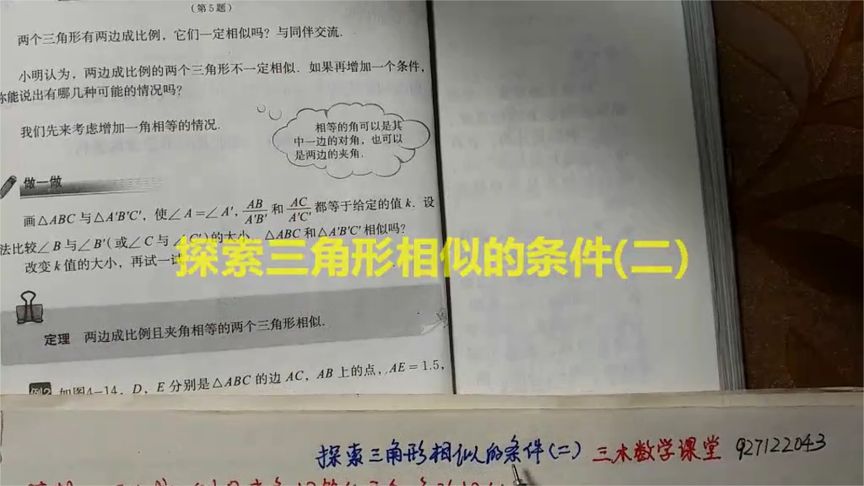 (第5题)
两个三角形有两边成比例，它们一定相似吗？与同伴交流.
小明认为，两边成比例的两个三角形不一定相似. 如果再增加一个条件，
你能说出有哪几种可能的情况吗？
我们先来考虑增加一角相等的情况.
相等的角可以是其
中一边的对角，也可以
是两边的夹角.
做一做
画△ABC与△A'B'C'，使∠A=∠A'，AB/A'B' 和 AC/A'C' 都等于给定的值k. 设
法比较∠B与∠B'(或∠C与∠C')的大小，△ABC和△A'B'C'相似吗？
改变k值的大小，再试一试
探索三角形相似的条件(二)
定理 两边成比例且夹角相等的两个三角形相似.
例2 如图4-14，D，E分别是△ABC的边AC，AB上的点，AE=1.5，
探索三角形相似的条件(二) 三木数学课堂 927122043